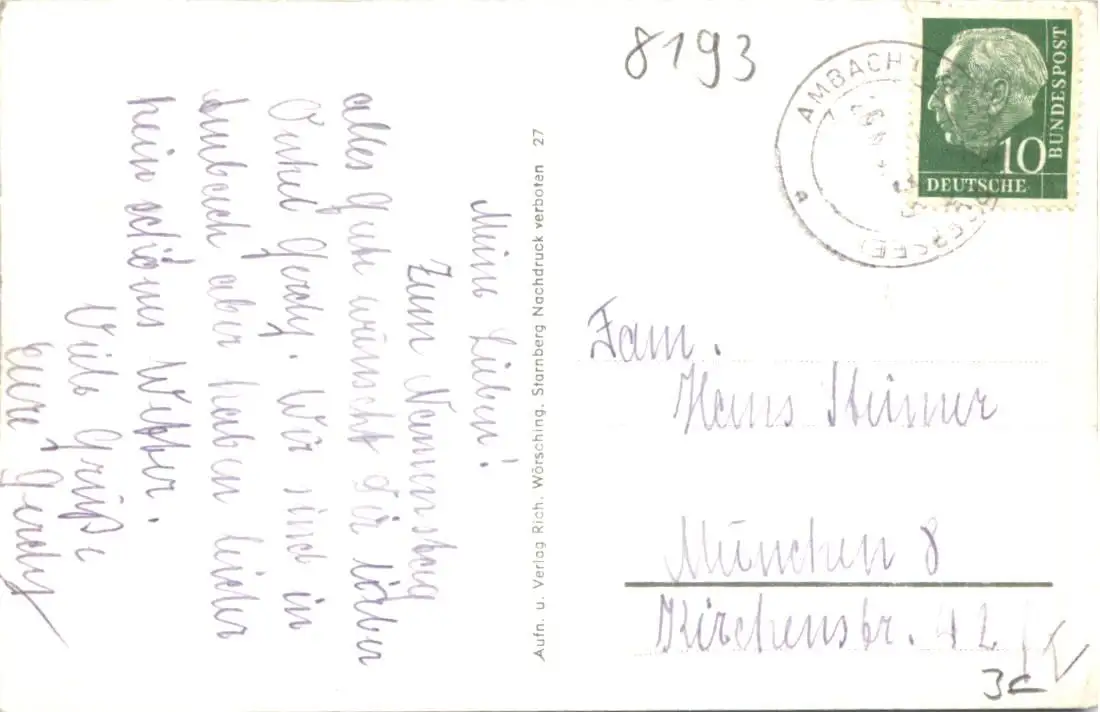 Meine Lieben!
Zum Namenstag
alles Gute wünscht Dir lieber
Onkel Gerdy. Wir sind in
Ambach aber haben leider
kein schönes Wetter.
Viele Grüße
Eure Gerdy
Aufn. u. Verlag Rich. Wörsching, Starnberg Nachdruck verboten 27
8193
AMBACH
DEUTSCHE
BUNDESPOST
10
Fam.
Hans Steimer
München 8
Kirchenstr. 42
3c